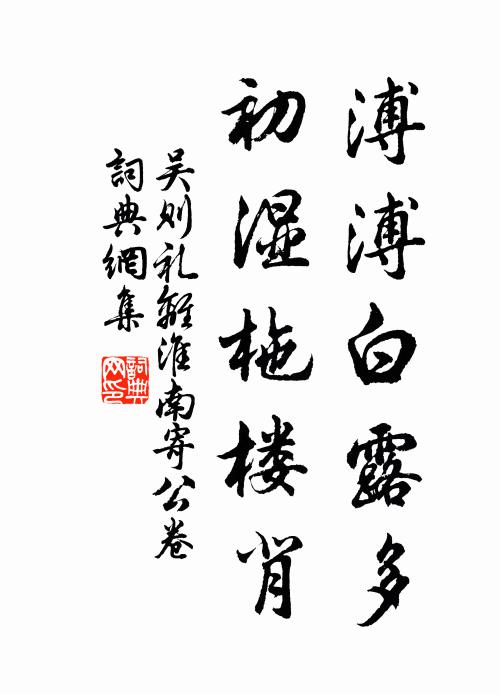 溥溥白露多
初湿柂楼肖
吴则礼離淮南寄公卷
詞典網集
詞典网印